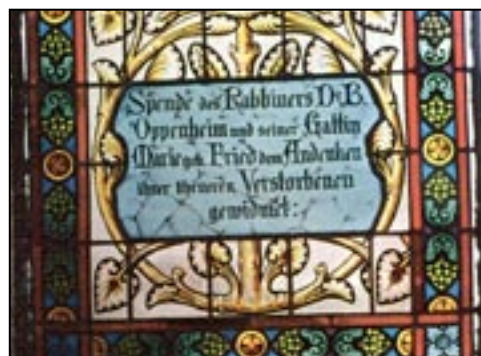 Spende des Rabbiners Dr. B.
Oppenheim und seiner Gattin
Marie geb. Fried dem Andenken
ihrer theueren Verstorbenen
gewidmet: